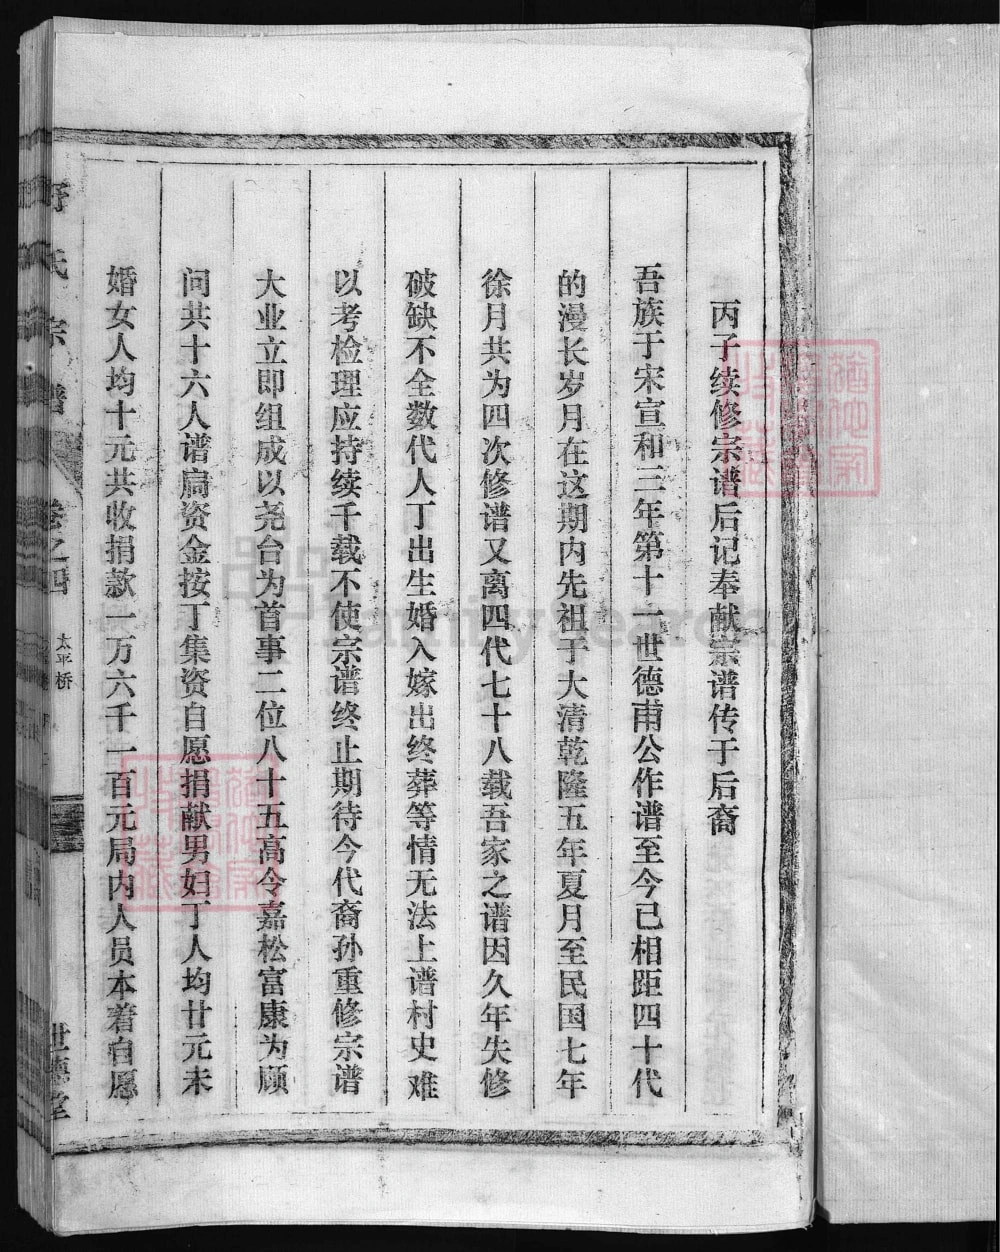 丙子续修宗谱后记奉献宗谱传于后裔
吾族于宋宣和三年第十一世德甫公作谱至今已相距四十代
的漫长岁月在这期内先祖于大清乾隆五年夏月至民国七年
徐月共为四次修谱又离四代七十八载吾家之谱因久年失修
破缺不全数代人丁出生婚入嫁出终葬等情无法上谱村史难
以考检理应持续千载不使宗谱终止期待今代裔孙重修宗谱
大业立即组成以尧台为首事二位八十五高令嘉松富康为顾
问共十六人谱扃资金按丁集资自愿捐献男妇丁人均廿元未
婚女人均十元共收捐款一万六千一百元局内人员本着自愿
舒氏宗谱 卷之四 太平桥 世德堂
familysearch